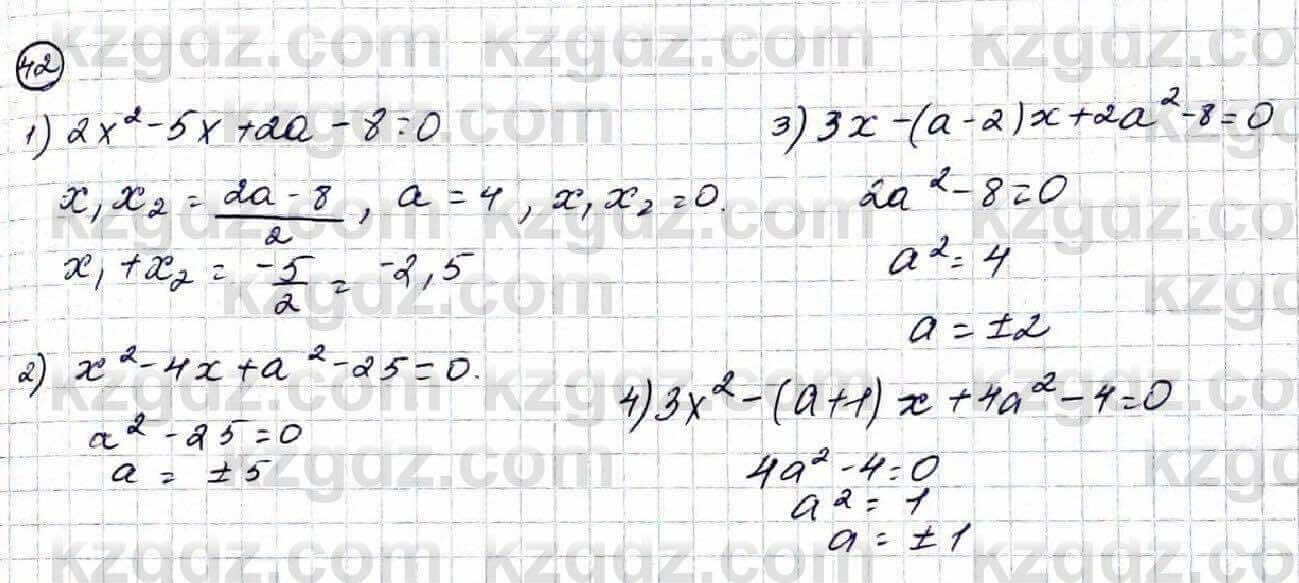 42
1) 2x² - 5x + 2a - 8 = 0
x₁ x₂ = (2a - 8)/2, a = 4, x₁ x₂ = 0.
x₁ + x₂ = -5/2 = -2,5
2) x² - 4x + a² - 25 = 0.
a² - 25 = 0
a = ±5
3) 3x - (a - 2)x + 2a² - 8 = 0
2a² - 8 = 0
a² = 4
a = ±2
4) 3x² - (a + 1)x + 4a² - 4 = 0
4a² - 4 = 0
a² = 1
a = ±1
kzgdz.com